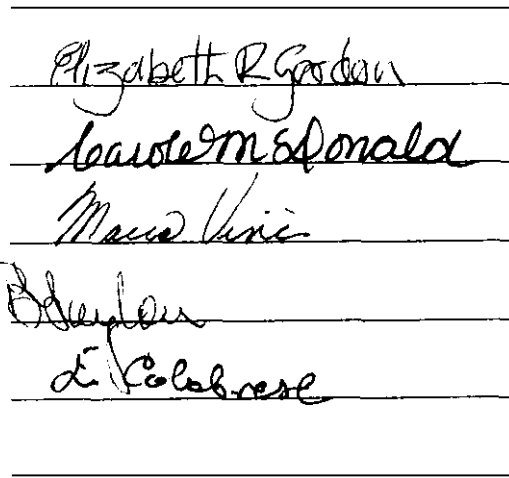 Elizabeth R Gordon
Carole McDonald
Maria Vinci
E. Calabrese